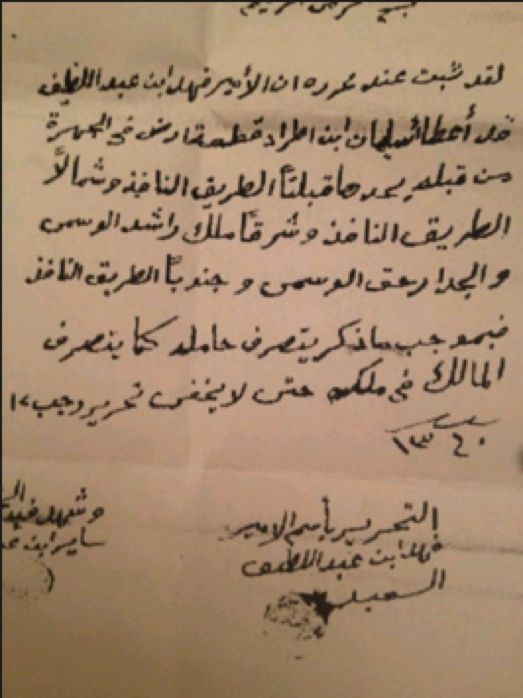 لقد ثبت عند محرره ان الأمير فهد ابن عبد اللطيف
قد أعطا سليمان ابن اطراد قطعة ارض في الجهرة
من قبله يحدها قبلتاً الطريق النافذ وشمالاً
الطريق النافذ وشرقاً ملك راشد الوسمى
والجدار حق الوسمى وجنوباً الطريق النافذ
فبموجب ماذكر يتصرف حامله كما يتصرف
المالك في ملكه حتى لا يخفى تحريره رجب ١٢
١٣٦٠
التحرير بأسم الامير
فهد ابن عبد اللطيف
وشهد
ساير ابن